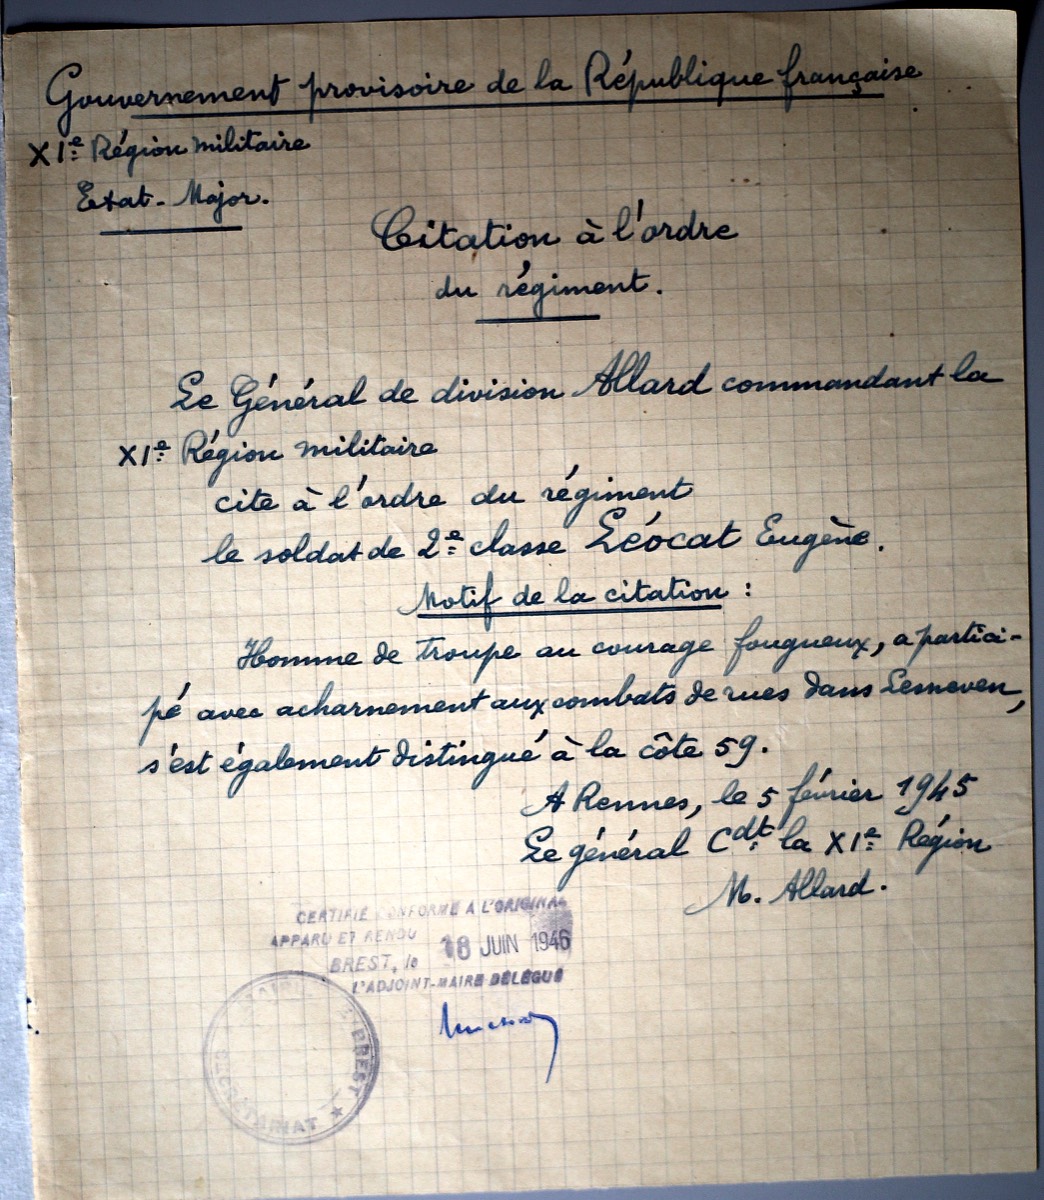 Gouvernement provisoire de la République française
XIe Région militaire
Etat-Major.
Citation à l'ordre
du régiment.
Le Général de division Allard commandant la
XIe Région militaire
cite à l'ordre du régiment
le soldat de 2e classe Léocat Eugène.
Motif de la citation :
Homme de troupe au courage fougueux, a partici-
pé avec acharnement aux combats de rues dans Lesneven,
s'est également distingué à la côte 59.
A Rennes, le 5 février 1945
Le général Cdt. la XIe Région
M. Allard.
CERTIFIÉ CONFORME A L'ORIGINAL
APPARU ET RENDU
BREST, le 18 JUIN 1946
L'ADJOINT-MAIRE DÉLÉGUÉ
MAIRIE DE BREST
SECRÉTARIAT